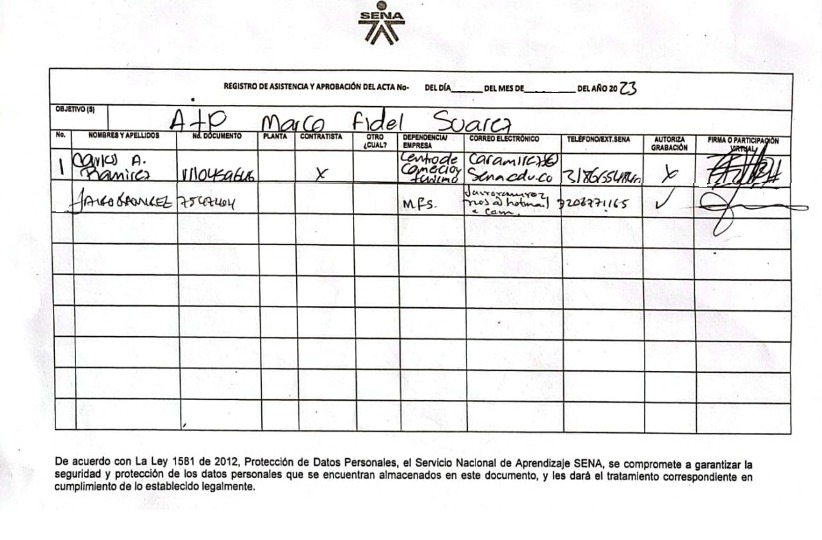 SENA
REGISTRO DE ASISTENCIA Y APROBACIÓN DEL ACTA No- DEL DÍA______ DEL MES DE__________ DEL AÑO 2023
OBJETIVO (S)
A+P Marco Fidel Suarez
No. NOMBRES Y APELLIDOS No. DOCUMENTO PLANTA CONTRATISTA OTRO ¿CUAL? DEPENDENCIA/ EMPRESA CORREO ELECTRÓNICO TELÉFONO/EXT.SENA AUTORIZA GRABACIÓN FIRMA O PARTICIPACIÓN VIRTUAL
1 Carlos A. Ramirez X Centro de Comercio y turismo Sena.edu.co X
M.F.S. ✓
De acuerdo con La Ley 1581 de 2012, Protección de Datos Personales, el Servicio Nacional de Aprendizaje SENA, se compromete a garantizar la
seguridad y protección de los datos personales que se encuentran almacenados en este documento, y les dará el tratamiento correspondiente en
cumplimiento de lo establecido legalmente.